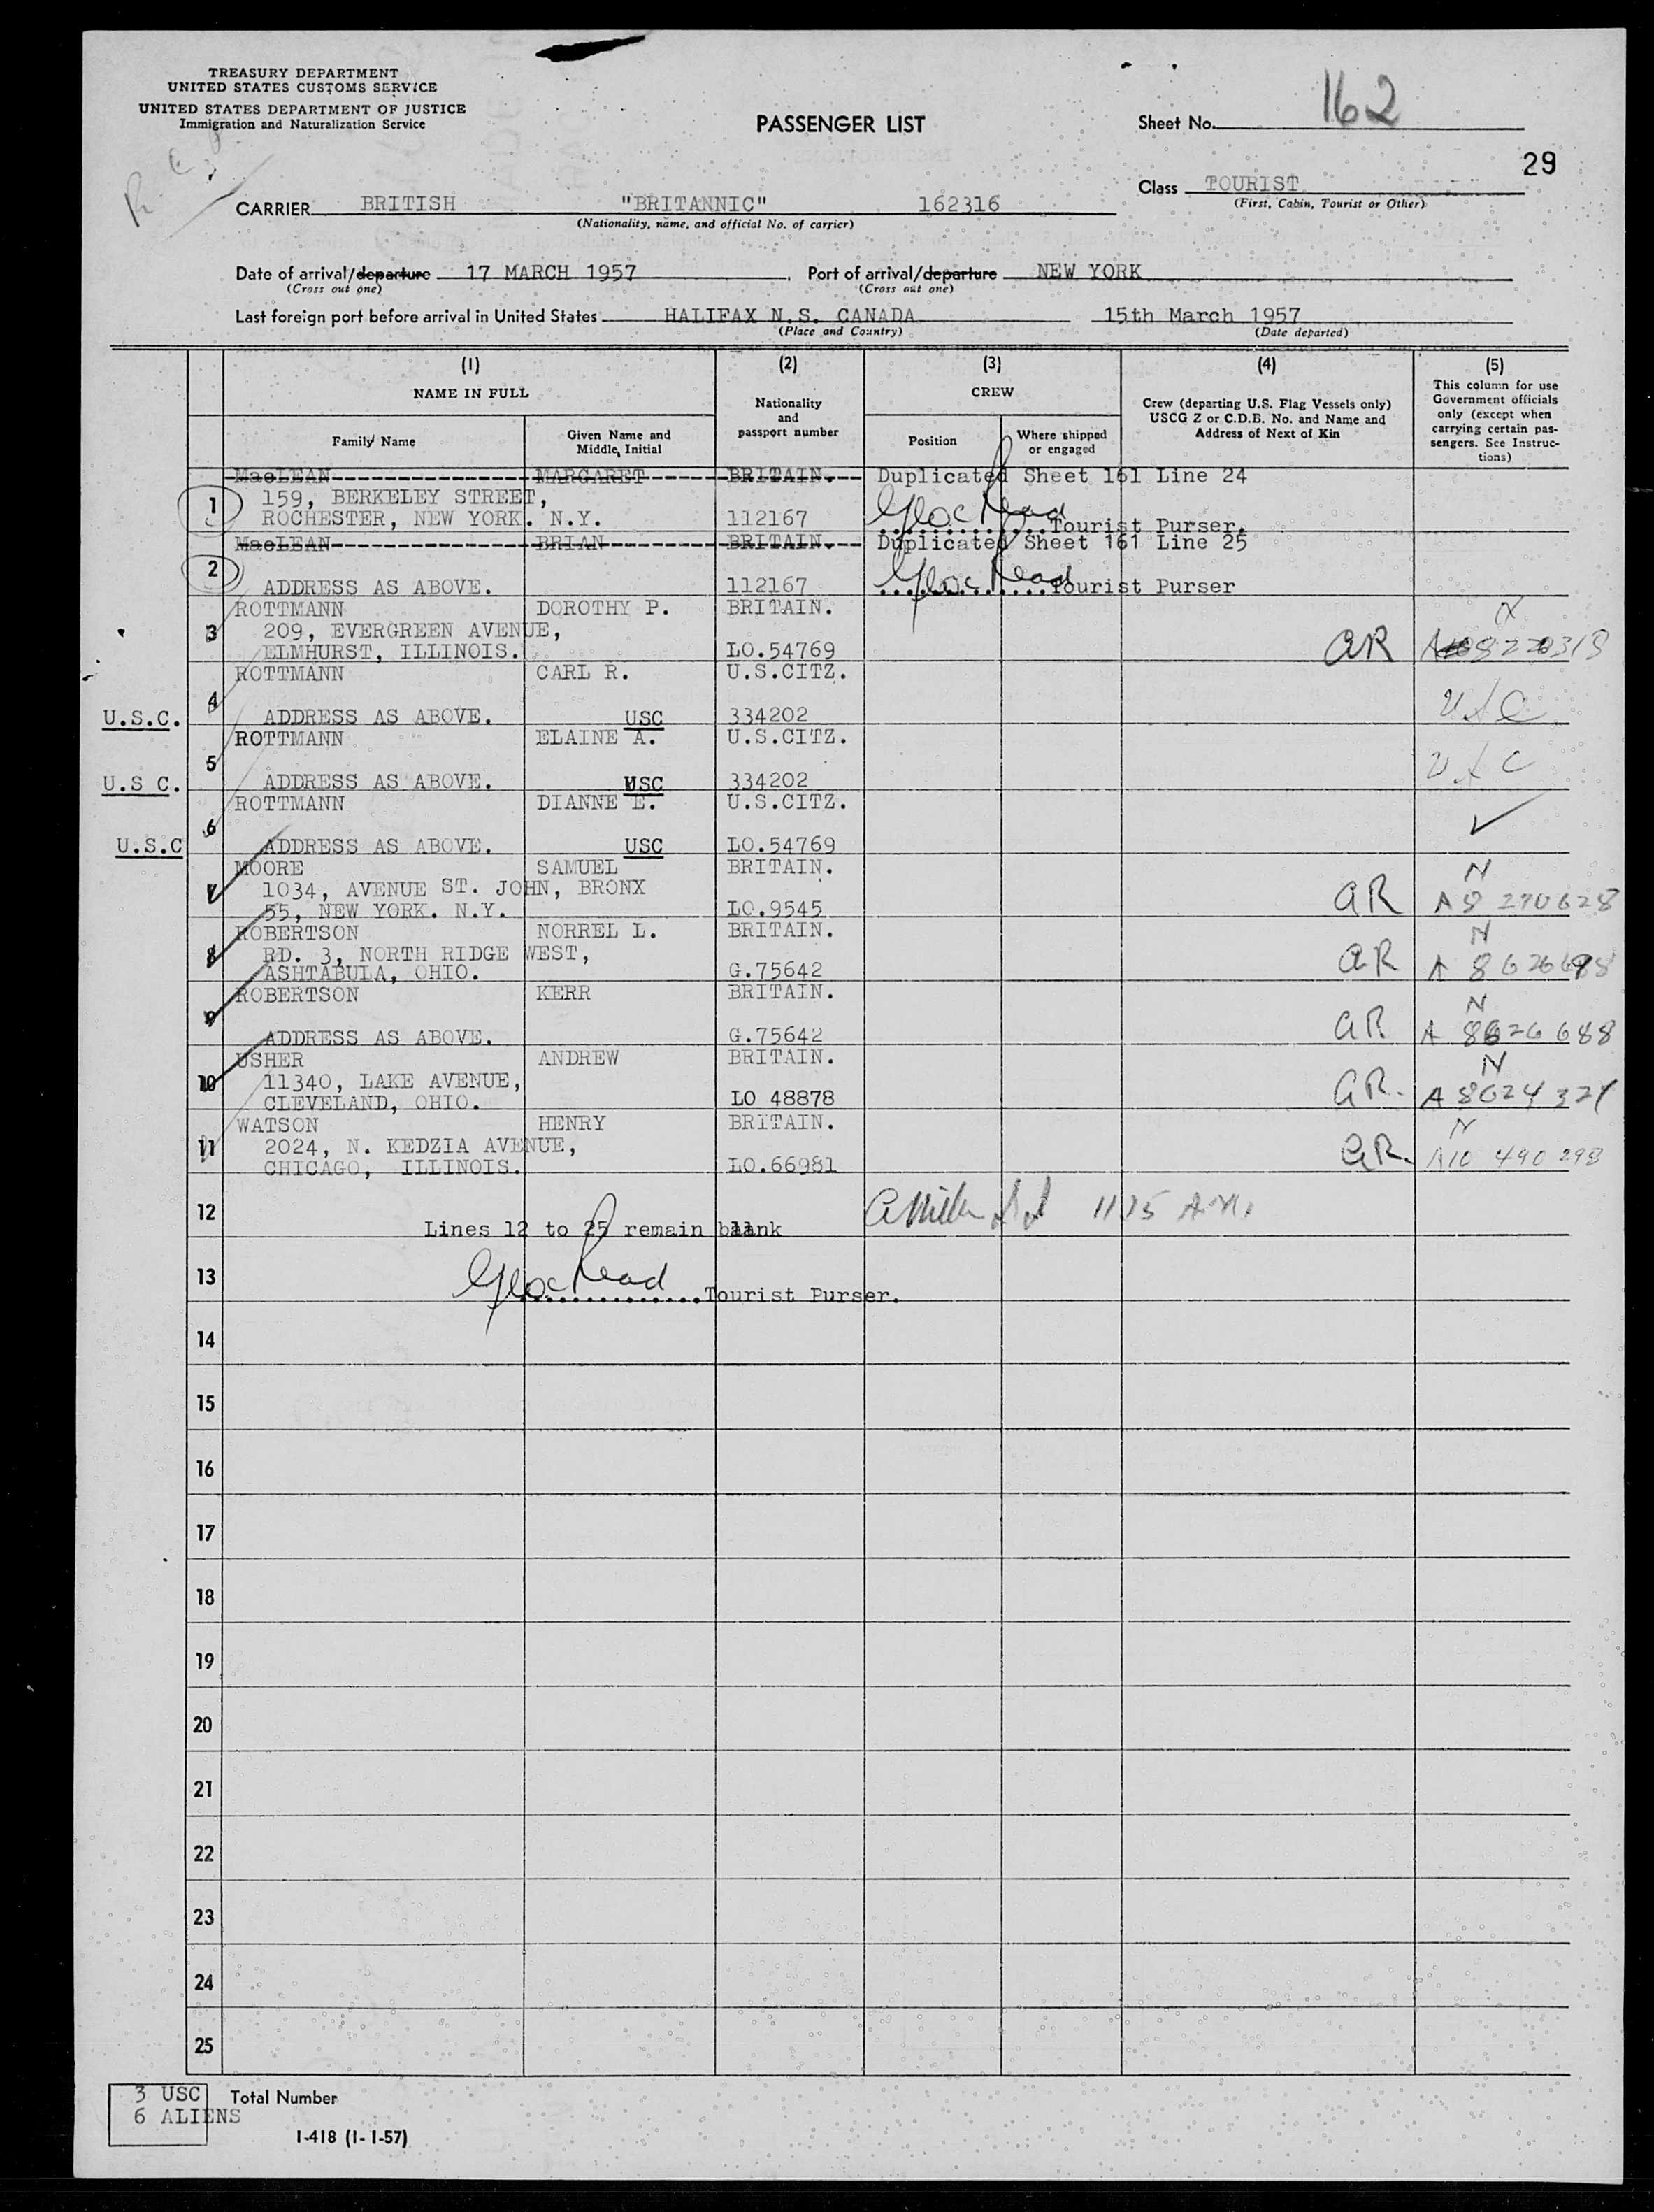 TREASURY DEPARTMENT
UNITED STATES CUSTOMS SERVICE
UNITED STATES DEPARTMENT OF JUSTICE
Immigration and Naturalization Service
PASSENGER LIST
Sheet No. 162
29
Class TOURIST
(First, Cabin, Tourist or Other)
CARRIER BRITISH "BRITANNIC" 162316
(Nationality, name, and official No. of carrier)
Date of arrival/departure 17 MARCH 1957 Port of arrival/departure NEW YORK
(Cross out one) (Cross out one)
Last foreign port before arrival in United States HALIFAX N.S. CANADA 15th March 1957
(Place and Country) (Date departed)
(1) (2) (3) (4) (5)
NAME IN FULL
Family Name
Given Name and Middle Initial
Nationality and passport number
CREW
Position
Where shipped or engaged
Crew (departing U.S. Flag Vessels only)
USCG Z or C.D.B. No. and Name and
Address of Next of Kin
This column for use
Government officials
only (except when
carrying certain pas-
sengers. See Instruc-
tions)
MacLEAN MARGARET BRITAIN. Duplicated Sheet 161 Line 24
1 159, BERKELEY STREET,
ROCHESTER, NEW YORK. N.Y. 112167 Tourist Purser.
MacLEAN BRIAN BRITAIN. Duplicated Sheet 161 Line 25
2
ADDRESS AS ABOVE. 112167 Tourist Purser
ROTTMANN DOROTHY P. BRITAIN.
3 209, EVERGREEN AVENUE,
ELMHURST, ILLINOIS. LO.54769 AR
ROTTMANN CARL R. U.S.CITZ.
4
U.S.C. ADDRESS AS ABOVE. USC 334202 USC
ROTTMANN ELAINE A. U.S.CITZ.
5
U.S C. ADDRESS AS ABOVE. USC 334202 USC
ROTTMANN DIANNE E. U.S.CITZ.
6
U.S.C ADDRESS AS ABOVE. USC LO.54769
MOORE SAMUEL BRITAIN. N
7 1034, AVENUE ST. JOHN, BRONX
55, NEW YORK. N.Y. LO.9545 AR A8 270628
ROBERTSON NORREL L. BRITAIN. N
8 RD. 3, NORTH RIDGE WEST,
ASHTABULA, OHIO. G.75642 AR
ROBERTSON KERR BRITAIN. N
9
ADDRESS AS ABOVE. G.75642 AR A 8626688
USHER ANDREW BRITAIN. N
10 11340, LAKE AVENUE,
CLEVELAND, OHIO. LO 48878 AR. A 8624321
WATSON HENRY BRITAIN. N
11 2024, N. KEDZIA AVENUE,
CHICAGO, ILLINOIS. LO.66981 AR. A10 490 298
12
Lines 12 to 25 remain blank
13
Tourist Purser.
14
15
16
17
18
19
20
21
22
23
24
25
3 USC Total Number
6 ALIENS
I-418 (1-1-57)